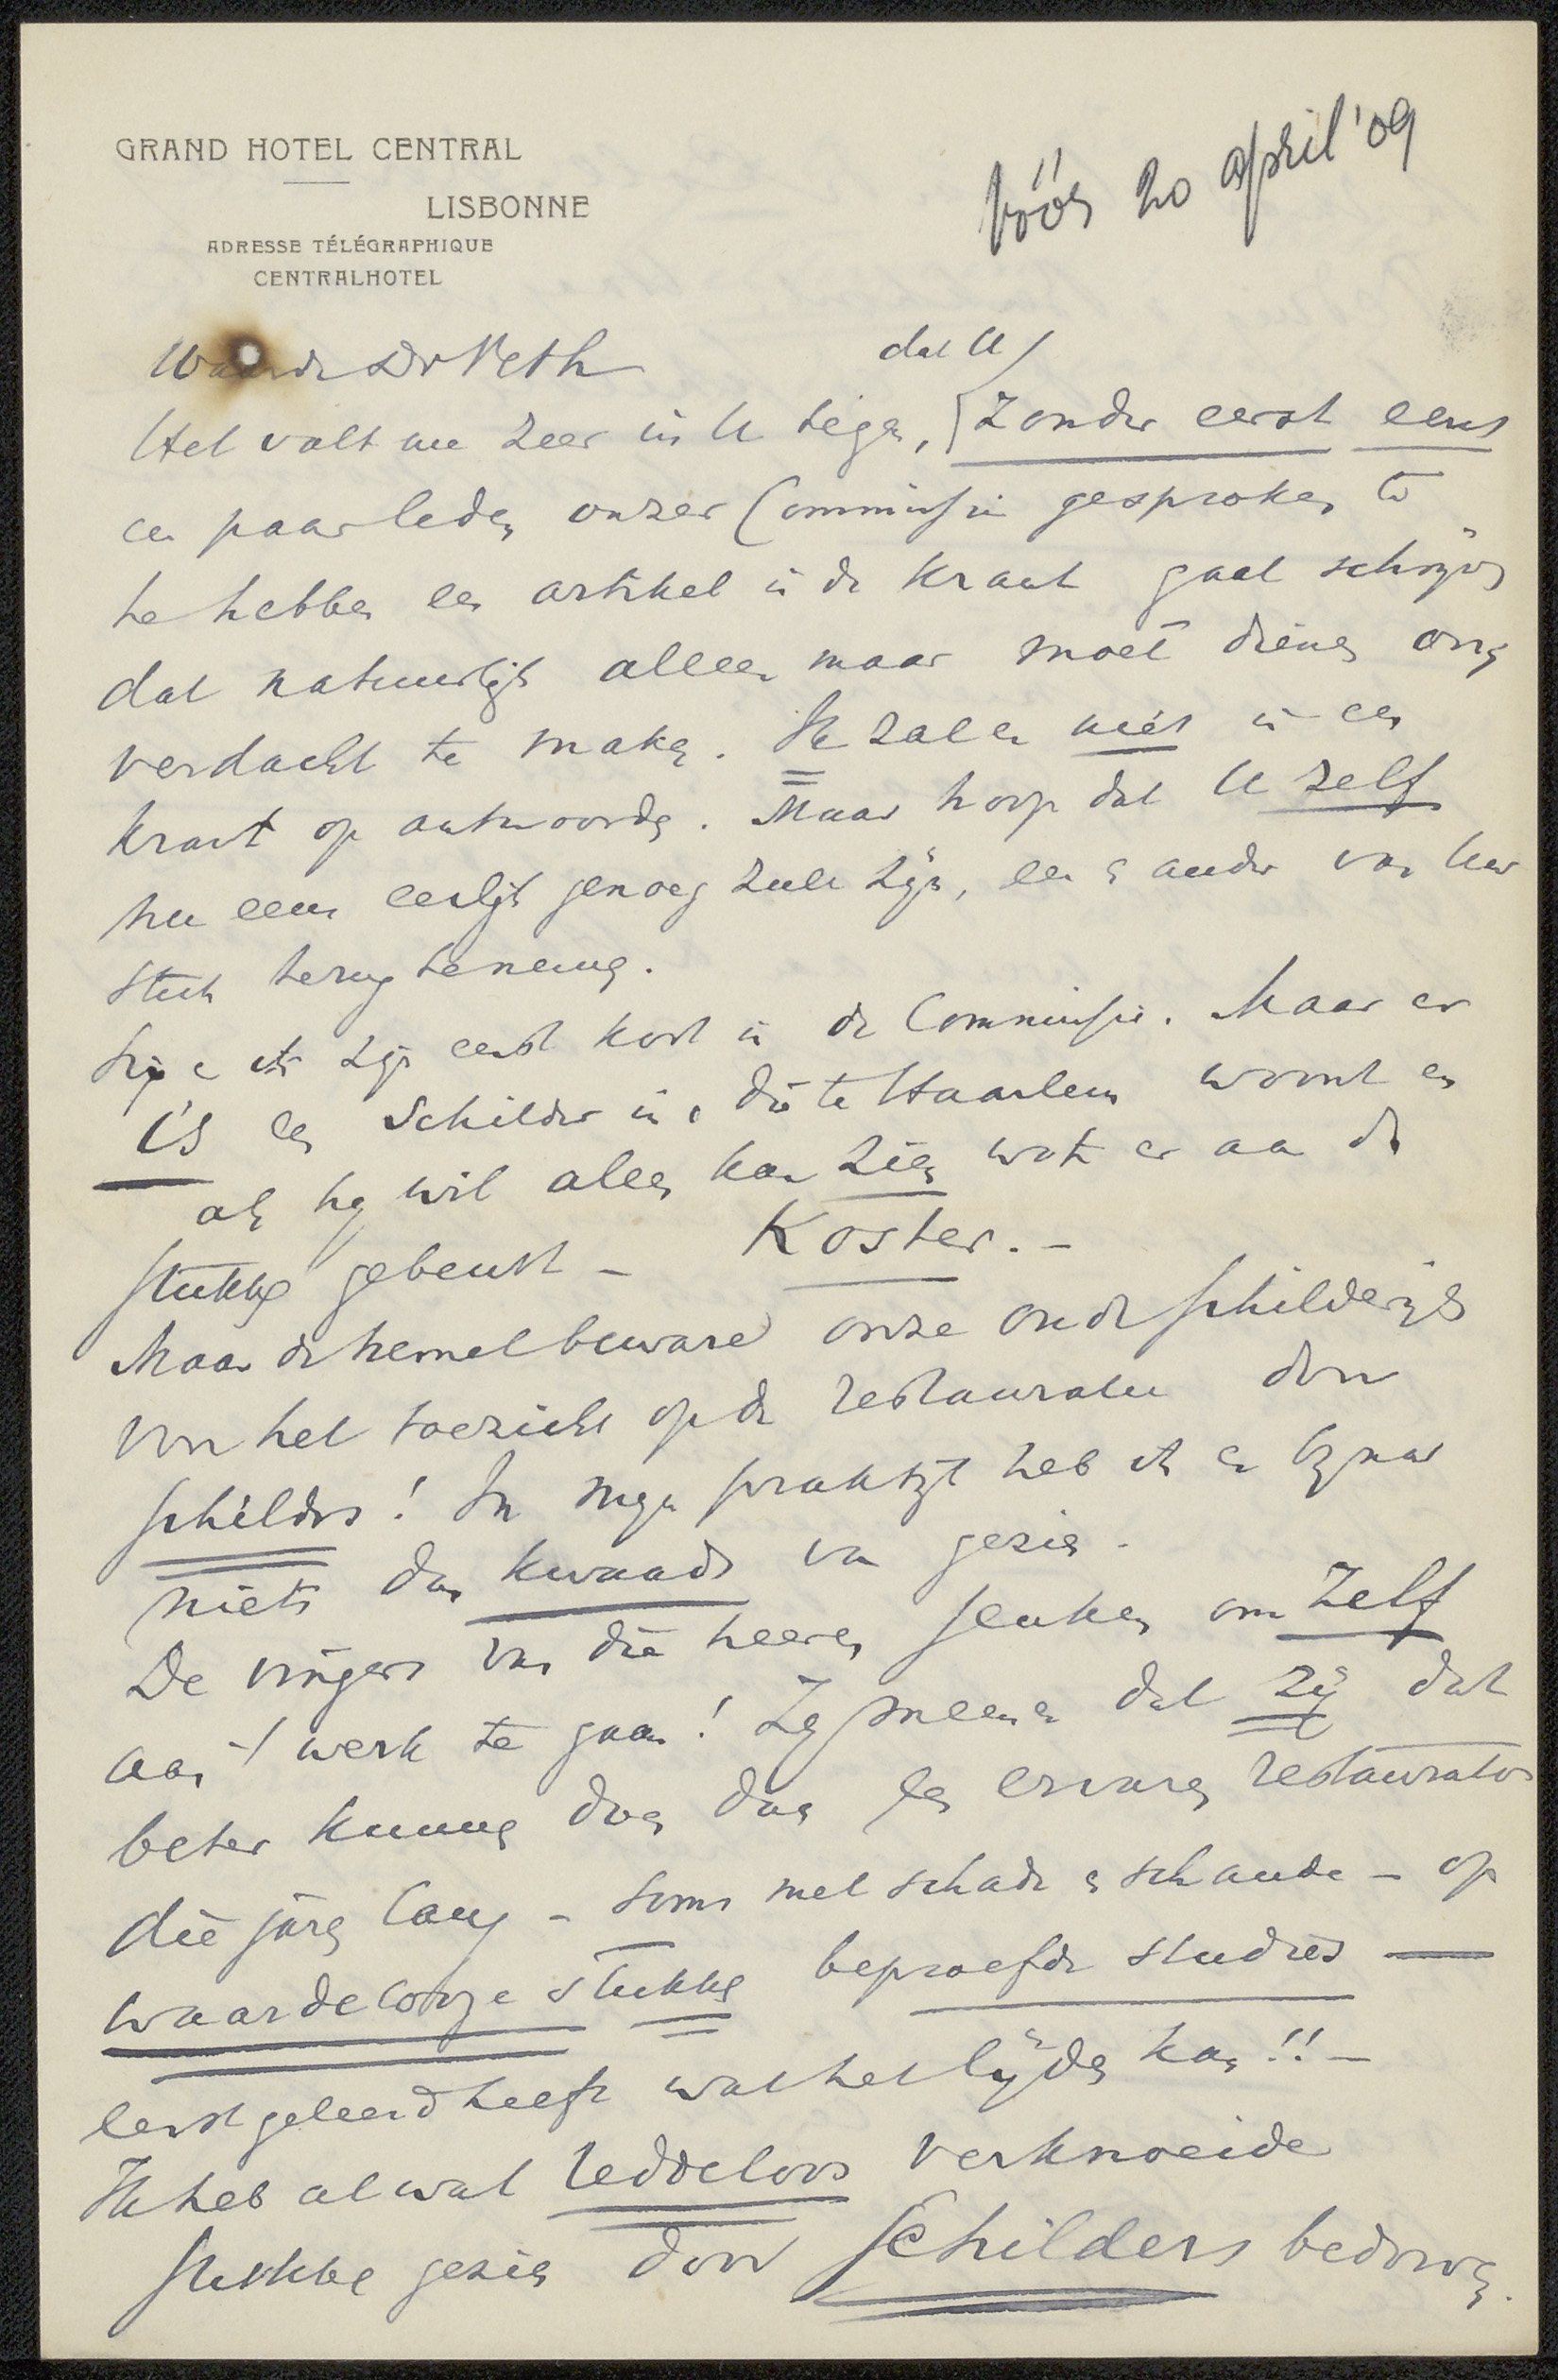 GRAND HOTEL CENTRAL
LISBONNE
ADRESSE TÉLÉGRAPHIQUE
CENTRALHOTEL
vóór 20 april '09
Waarde Dr Veth
dat U
Het valt me zeer in U tegen, zonder eerst eens
een paar leden onzer Commissie gesproken te
te hebben een artikel in de Krant gaat schrijven
dat natuurlijk alleen maar moet dienen ons
verdacht te maken. Ik zal er niet in een
krant op antwoorden. Maar hoop dat U zelf
nu eens eerlijk genoeg zult zijn, een & ander van Uw
stuk terug te nemen.
ik zijn eerst kort in de Commissie. Maar er
is een Schilder in, die te Haarlem woont en
als hij wil alles kan zien wat er aan de
stukken gebeurt – Koster. –
Maar de hemel beware onze oude schilderijen
van het toezicht op de restauratie door
schilders! In mijn praktijk heb ik er bijna
niets dan kwaads van gezien.
De vingers van die heeren jeuken om zelf
aan 't werk te gaan! Zij meenen dat zij dat
beter kunnen doen dan een ervaren restaurator
die jaren lang – soms met schade & schande – op
waardelooze stukken beproefde studies —
eerst geleerd heeft wat het lijden kan!! –
Ik heb al wat reddeloos verknoeide
stukken gezien door schilders bedorven.